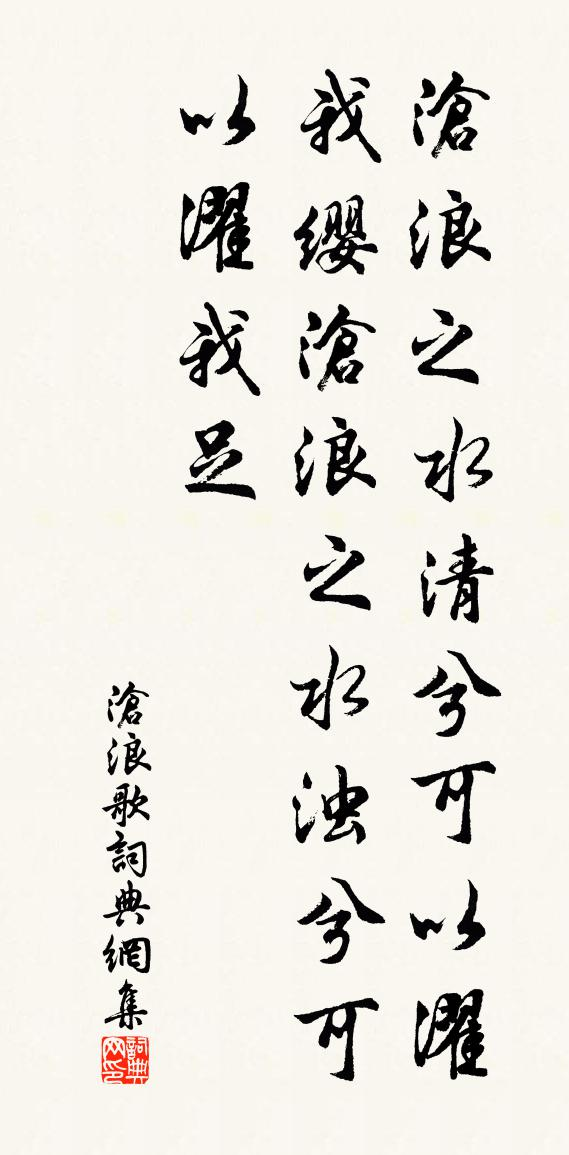 滄浪之水清兮可以濯
我缨滄浪之水浊兮可
以濯我足
滄浪歌詞典網集
詞典
网印